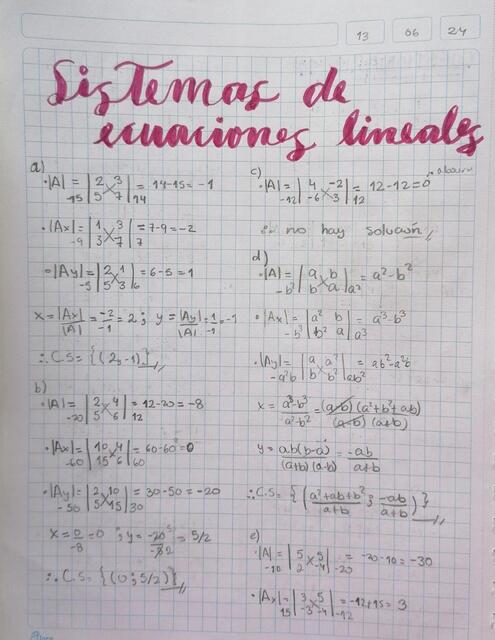 13 06 24
Sistemas de
ecuaciones lineales
a)
·|A| = |2 3; 5 7| = 14-15 = -1
-15 14
·|Ax| = |1 3; 3 7| = 7-9 = -2
-9 7
·|Ay| = |2 1; 5 3| = 6-5 = 1
-5 6
x = |Ax|/|A| = -2/-1 = 2; y = |Ay|/|A| = 1/-1 = -1
∴ C.S = {(2,-1)}
b)
·|A| = |2 4; 5 6| = 12-20 = -8
-20 12
·|Ax| = |10 4; 15 6| = 60-60 = 0
-60 60
·|Ay| = |2 10; 5 15| = 30-50 = -20
-50 30
x = 0/-8 = 0; y = -20/-8 5 2 = 5/2
∴ C.S = {(0; 5/2)}
c)
·|A| = |4 -2; -6 3| = 12-12 = 0
-12 12
∴ no hay solución
d)
·|A| = |a b; b a| = a²-b²
-b² a²
·|Ax| = |a² b; b² a| = a³-b³
-b³ a³
·|Ay| = |a a²; b b²| = ab²-a²b
-a²b ab²
x = a³-b³/a²-b² = (a-b)(a²+b²+ab)/(a-b)(a+b)
y = ab(b-a)/(a+b)(a-b) = -ab/a+b
∴ C.S = {(a²+ab+b²/a+b; -ab/a+b)}
e)
·|A| = |5 5; 2 -4| = -20-10 = -30
-10 -20
·|Ax| = |3 5; -3 -4| = -12+15 = 3
15 -12